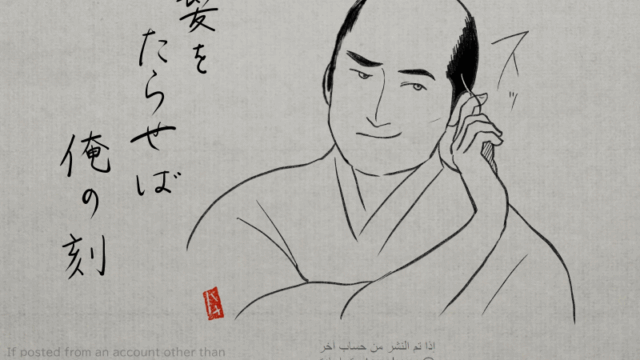 髪を
たらせば
俺の刻
スッ
If posted from an account other than
اذا تم النشر من حساب اخر